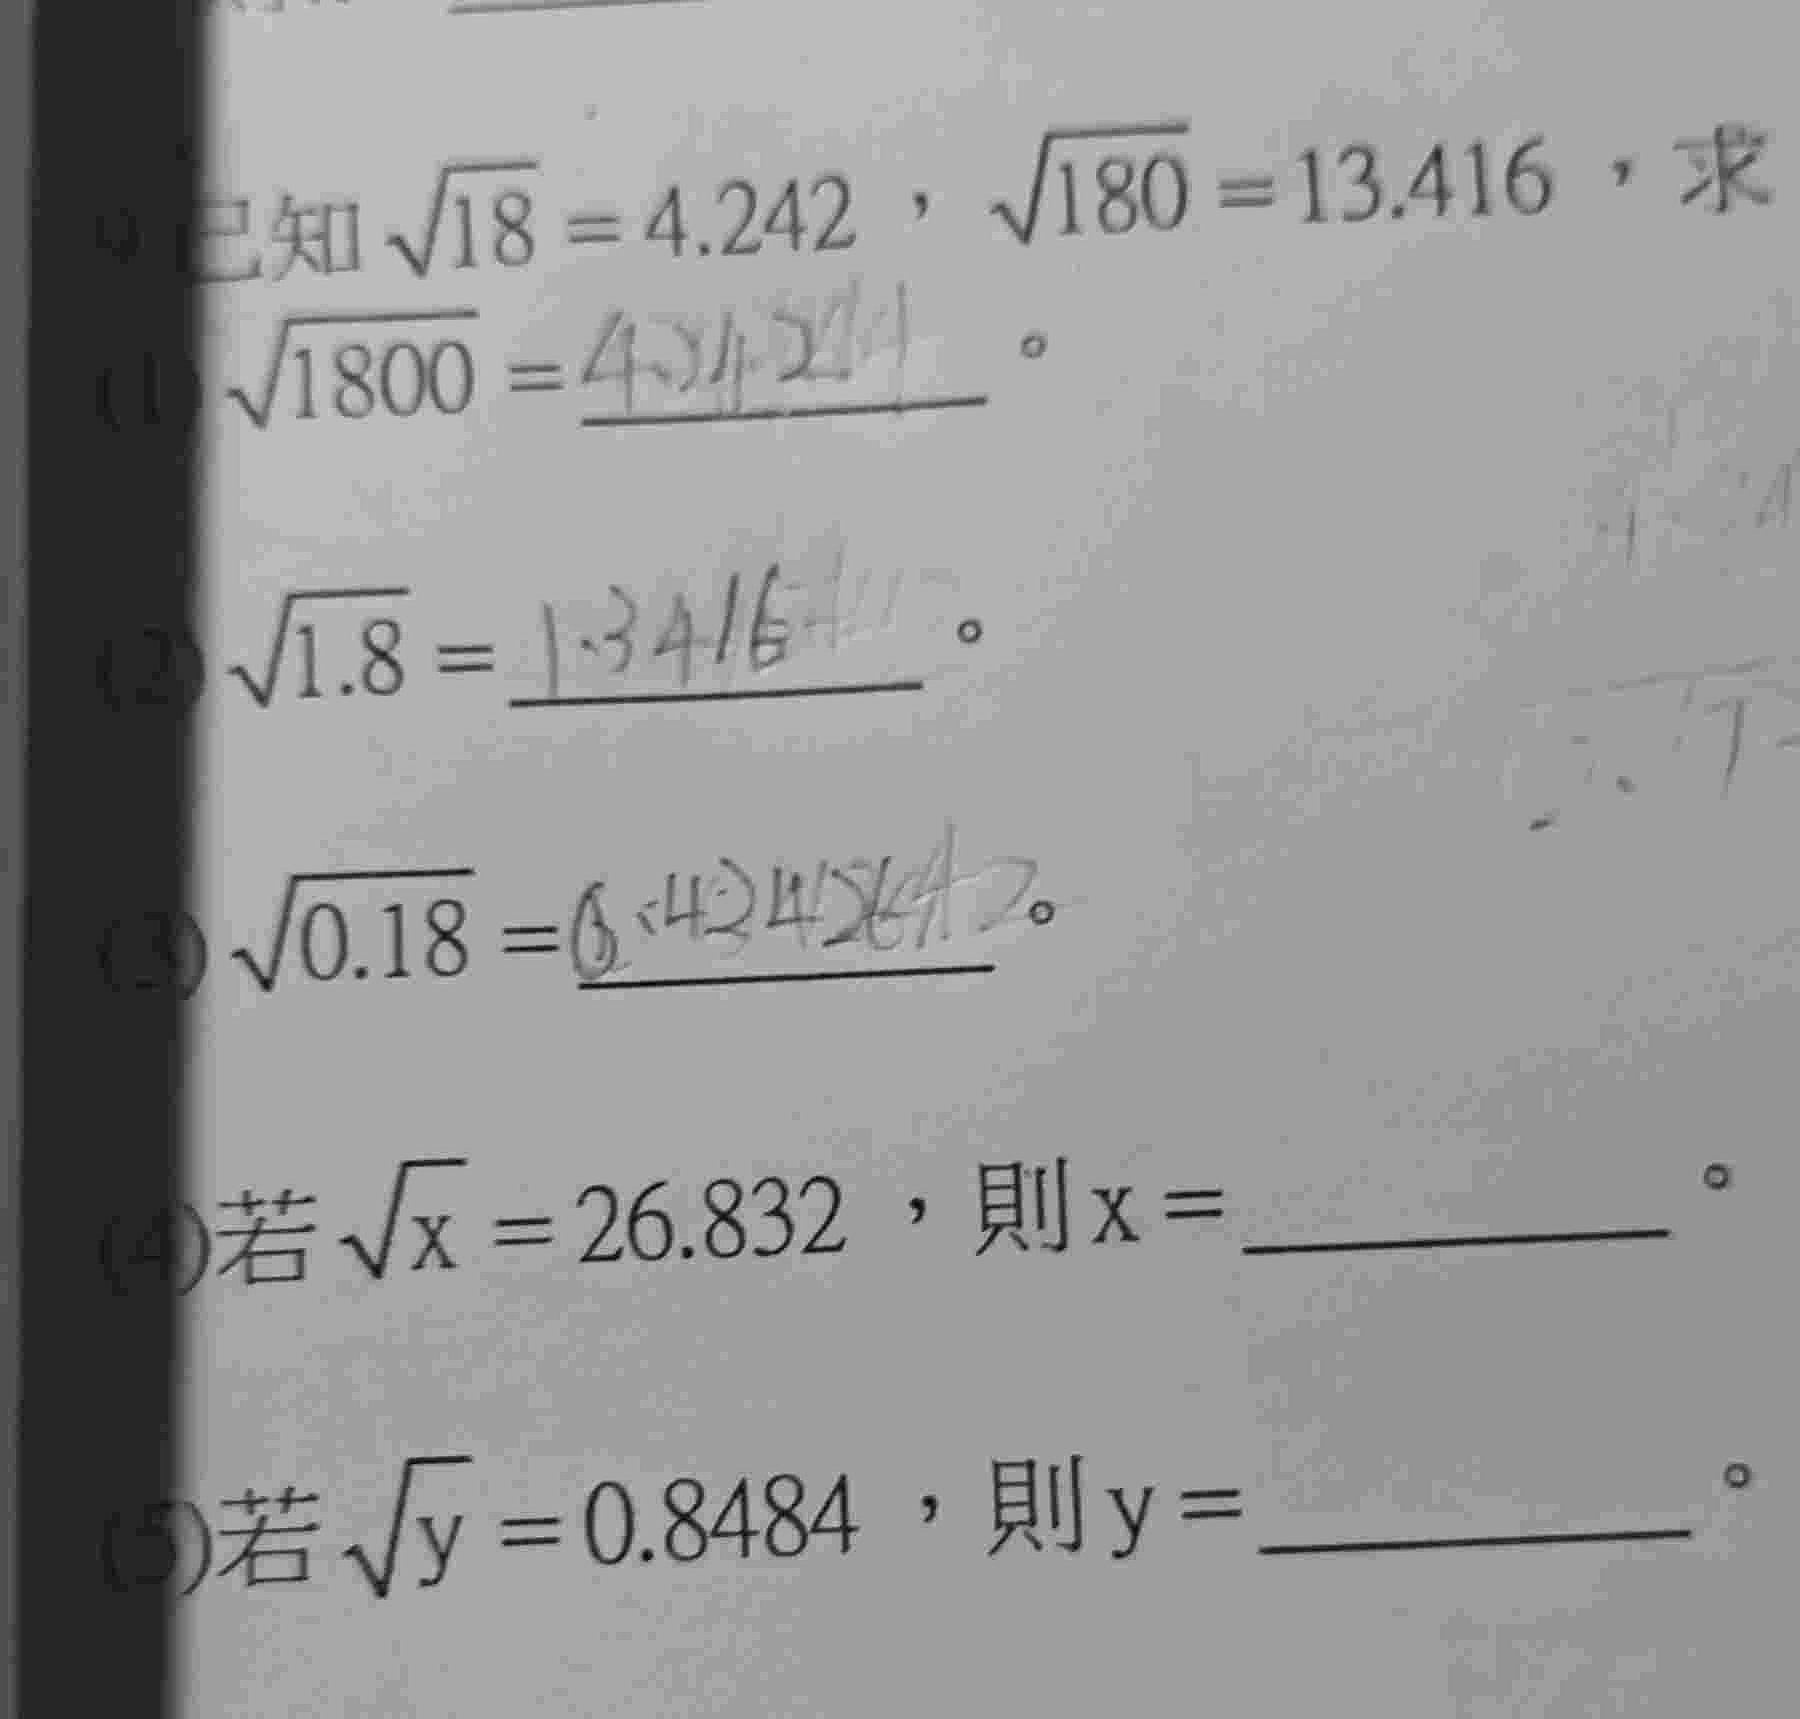 已知 √18 = 4.242，√180 = 13.416，求
(1) √1800 = 。
(2) √1.8 = 1.3416 。
(3) √0.18 = 。
(4)若 √x = 26.832，則 x = 。
(5)若 √y = 0.8484，則 y = 。